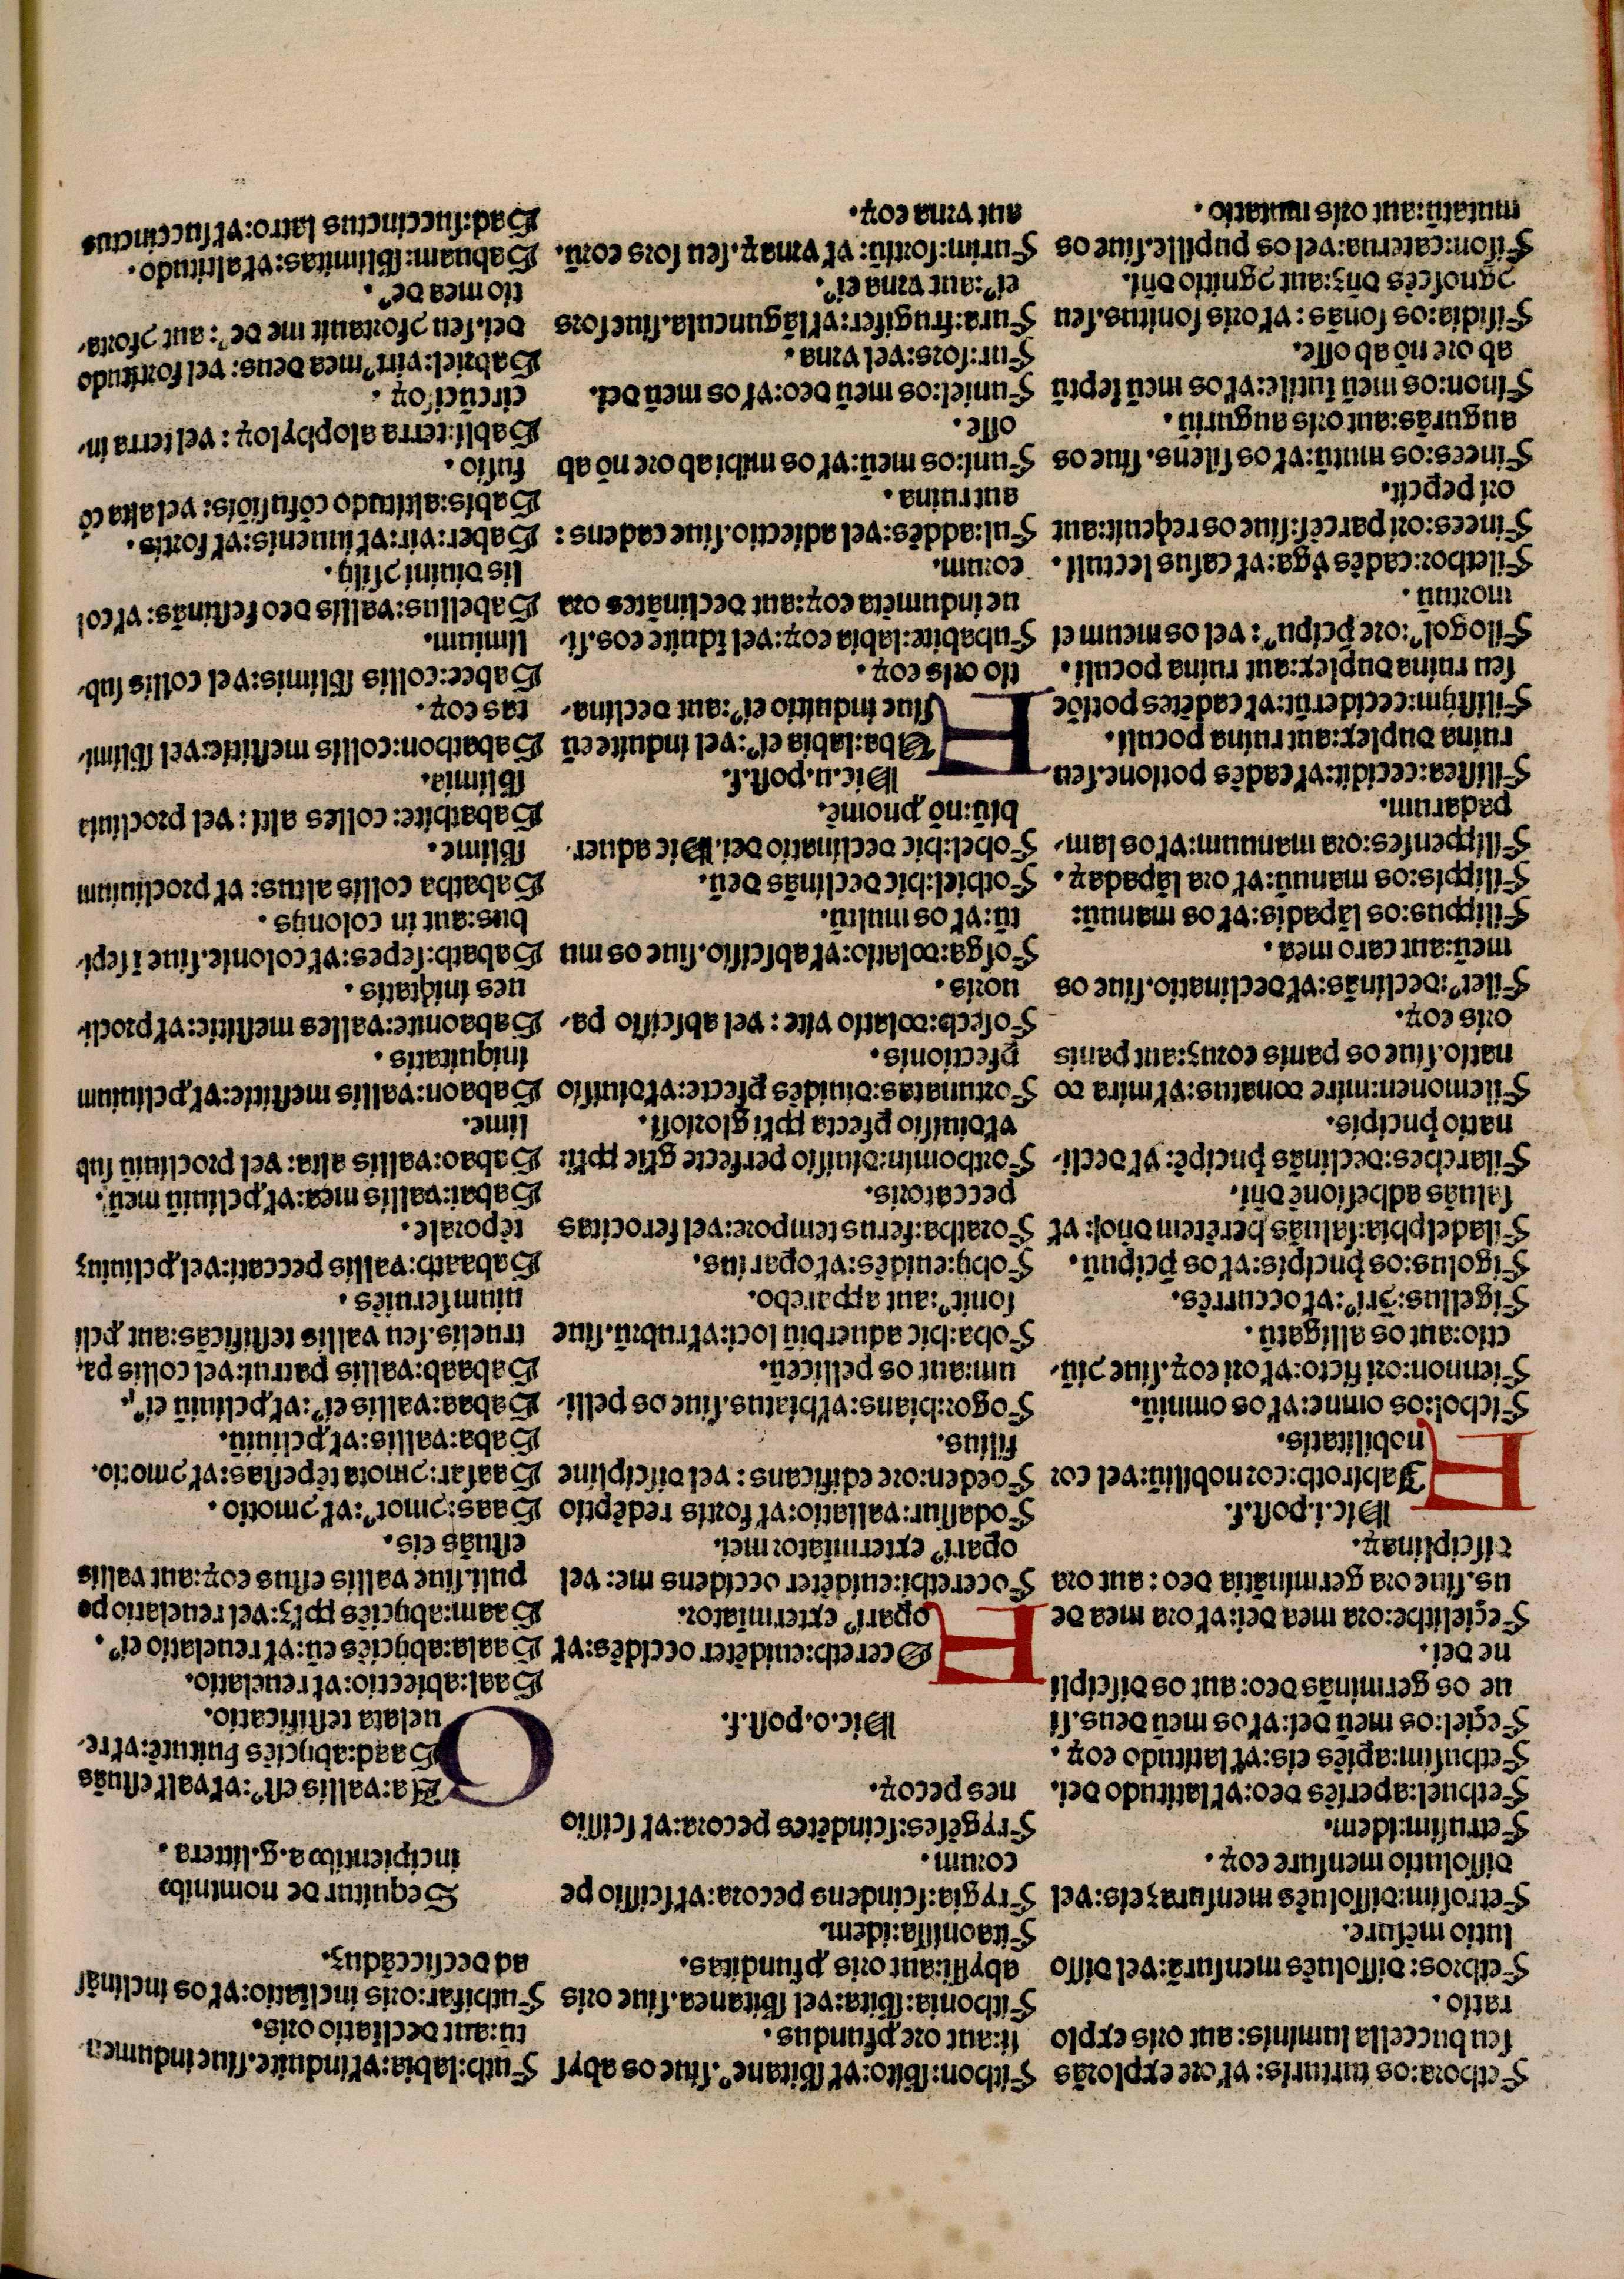 Fethora:os turturis: vł ore explorās
seu buccella luminis: aut oris explo
ratio.
Fethros: dissoluēs mensurā:vel disso
lutio mēsure.
Fetrosim:dissoluēs mensuraʒ eis:vel
dissolutio mensure eoꝝ.
Fetrusim:idem.
Fethuel:aperiēs deo:vł latitudo dei.
Fethusim:apiēs eis:vł latitudo eoꝝ.
Feʒiel:os meū dei:vł os meū deus.si
ue os germinās deo: aut os discipli
ne dei.
Feʒielithe:ora mea dei:vł ora mea de
us.siue ora germinātia deo: aut ora
disciplinaꝝ.
Hic.i.post.f.
Fiabirioth:cor nobiliū:vel cor
nobilitatis.
Fichol:os omne:vł os omniū.
Fiennon:ori ficto:vł ori eoꝝ.siue ↄiū
cto:aut os alligatū.
Figellus:ↄ̄rꝰ:vł occurrēs.
Figolus:os pͥncipis:vł os pͥcipuū.
Filadelphia:saluās herētem dn̄o: vł
saluās adhesionē dn̄i.
Filarches:declinās pͥncipē: vł decli-
natio pͥncipis.
Filemonen:mire donatus:vł mira do
natio.siue os panis eoruʒ:aut panis
oris eoꝝ.
Filetꝰ:declinās:vł declinatio.siue os
meū:aut caro mea.
Filippus:os lāpadis:vł os manuū:
Filippis:os manuū:vł ora lāpadaꝝ.
Filippenses:ora manuum:vł os lam-
padarum.
Filistea:cecidit:vł cadēs potione.seu
ruina duplex:aut ruina poculi.
Filistijm:ceciderūt:vł cadētes potiōe
seu ruina duplex:aut ruina poculi.
Filogolꝰ:ore pͥcipuꝰ: vel os meum et
mortuū.
Filethor:cadēs v̄ga:vł casus lectuli.
Finees:ori parcēs:siue os reqͥeuit:aut
ori pepcit.
Finees:os mutū:vł os silens.siue os
augurās:aut oris auguriū.
Finon:os meū futile:vł os meū leptū
ab ore nō ab osse.
Fisidia:os sonās: vł oris sonitus.seu
ↄgnoscēs dn̄ʒ:aut ↄgnitio dn̄i.
Fison:caterua:vel os pupille.siue os
mutatū:aut oris mutatio.
Fithon:sb̄ito:vł sb̄itaneꝰ.siue os abys
si:aut ore ꝓfundus.
Fithonia:sb̄ita:vel sb̄itanea.siue oris
abyssi:aut oris ꝓfunditas.
Fitaonissa:idem.
Frygia:scindens pecora:vł scissio pe
corum.
Frygēses:scindētes pecora:vł scissio
nes pecoꝝ.
Hic.o.post.f.
FOcereth:euidēter occidēs:vł
oꝑariꝰ exterminator.
Foceretbi:euidēter occidens me: vel
oꝑariꝰ exterminator mei.
Fodassur:vallatio:vł fortis redēptio
Foeden:ore edificans: vel discipline
filius.
Fogor:hians:vł hiatus.siue os pelli-
um:aut os pelliceū.
Foba:hic aduerbiū loci:vł rubrū.siue
sonitꝰ:aut apparebo.
Fobij:euidēs:vł oparius.
Foratha:ferus tempore:vel ferocitas
peccatoris.
Forthomin:diuisio perfecte gr̄ie ppłi:
vł diuisio pfecta ppłi gloriosi.
Fortunatas:diuidēs pfecte:vł diuisio
pfectionis.
Fosech:dolatio vite: vel abscissio pa-
uoris.
Fosga:dolatio:vł abscissio.siue os mu
tū:vł os multū.
Fothiel:hic declinās deū.
Fobel:hic declinatio dei.Hic aduer-
biū:nō pnomē.
Hic.u.post.f.
FUba:labia eiꝰ:vel induite eū
siue induitio eiꝰ:aut declina-
tio oris eoꝝ.
Fubabite:labia eoꝝ:vel īduite eos.si-
ue indumēta eoꝝ:aut declinātes ora
eorum.
Ful:addēs:vel adiectio.siue cadens:
aut ruina.
Funi:os meū:vł os mihi ab ore nō ab
osse.
Funiel:os meū deo:vł os meū dei.
Fur:fors:vel vrna.
Fura:frugifer:vł lāguncula.siue fors
eiꝰ:aut vrna eiꝰ.
Furim:fortiū: vł vrnaꝝ.seu fors eorū.
aut vrna eoꝝ.
Futh:labia:vł induite.siue indumen-
tū:aut decliatio oris.
Futhifar:oris incliatio:vł os inclinās
ad desiccāduʒ.
Sequitur de nominibꝰ
incipientibꝰ a.g.littera.
GAa:vallis estꝰ:vł vall̓ estuās
Gaad:abijciēs furitutē:vł re-
uelata testificatio.
Gaal:abiectio:vł reuelatio.
Gaala:abijciēs eū:vł reuelatio eiꝰ.
Gaam:abijciēs pplʒ:vel reuelatio po
puli.siue vallis estus eoꝝ:aut vallis
estuās eis.
Gaas:ↄmotꝰ:vł ↄmotio.
Gaasar:ↄmota tēpestas:vł ↄmotio.
Gaba:vallis:vł ꝓcliuiū.
Gabaa:vallis eiꝰ:vł ꝓcliuiū eiꝰ.
Gabaab:vallis patrui:vel collis pa-
truelis.seu vallis testificās:aut ꝓcli
uium seruiēs.
Gabaath:vallis peccati:vel ꝓcliuiuʒ
tēporale.
Gabai:vallis mea:vł ꝓcliuiū meū.
Gabao:vallis alta: vel procliuiū sub
lime.
Gabaon:vallis mestitie:vł ꝓcliuium
iniquitatis.
Gabaonite:valles mestitie:vł procli-
ues iniqͥtatis.
Gabath:sepes:vł colonie.siue ī sepi-
bus:aut in colonijs.
Gabatha collis altus: vł procliuium
sb̄lime.
Gabathite: colles alti: vel procliuia
sb̄limia.
Gabathon:collis mestitie:vel sb̄limi-
tas eoꝝ.
Gabee:collis sb̄limis:vel collis sub-
limium.
Gabellus:vallis deo festinās: vł col
lis diuini ↄsilij.
Gaber:vir:vł iuuenis:vł fortis.
Gabis:altitudo cōfusiōis: vel alta cō
fusio.
Gabli:terra alophyloꝝ: vel terra in-
circūcisoꝝ.
Gabriel:virꝰ mea deus: vel fortitudo
dei.seu ↄfortauit me deꝰ: aut ↄforta-
tio mea deꝰ.
Gabuam:sb̄limitas:vł altitudo.
Gad:succinctus latro:vł succinctus